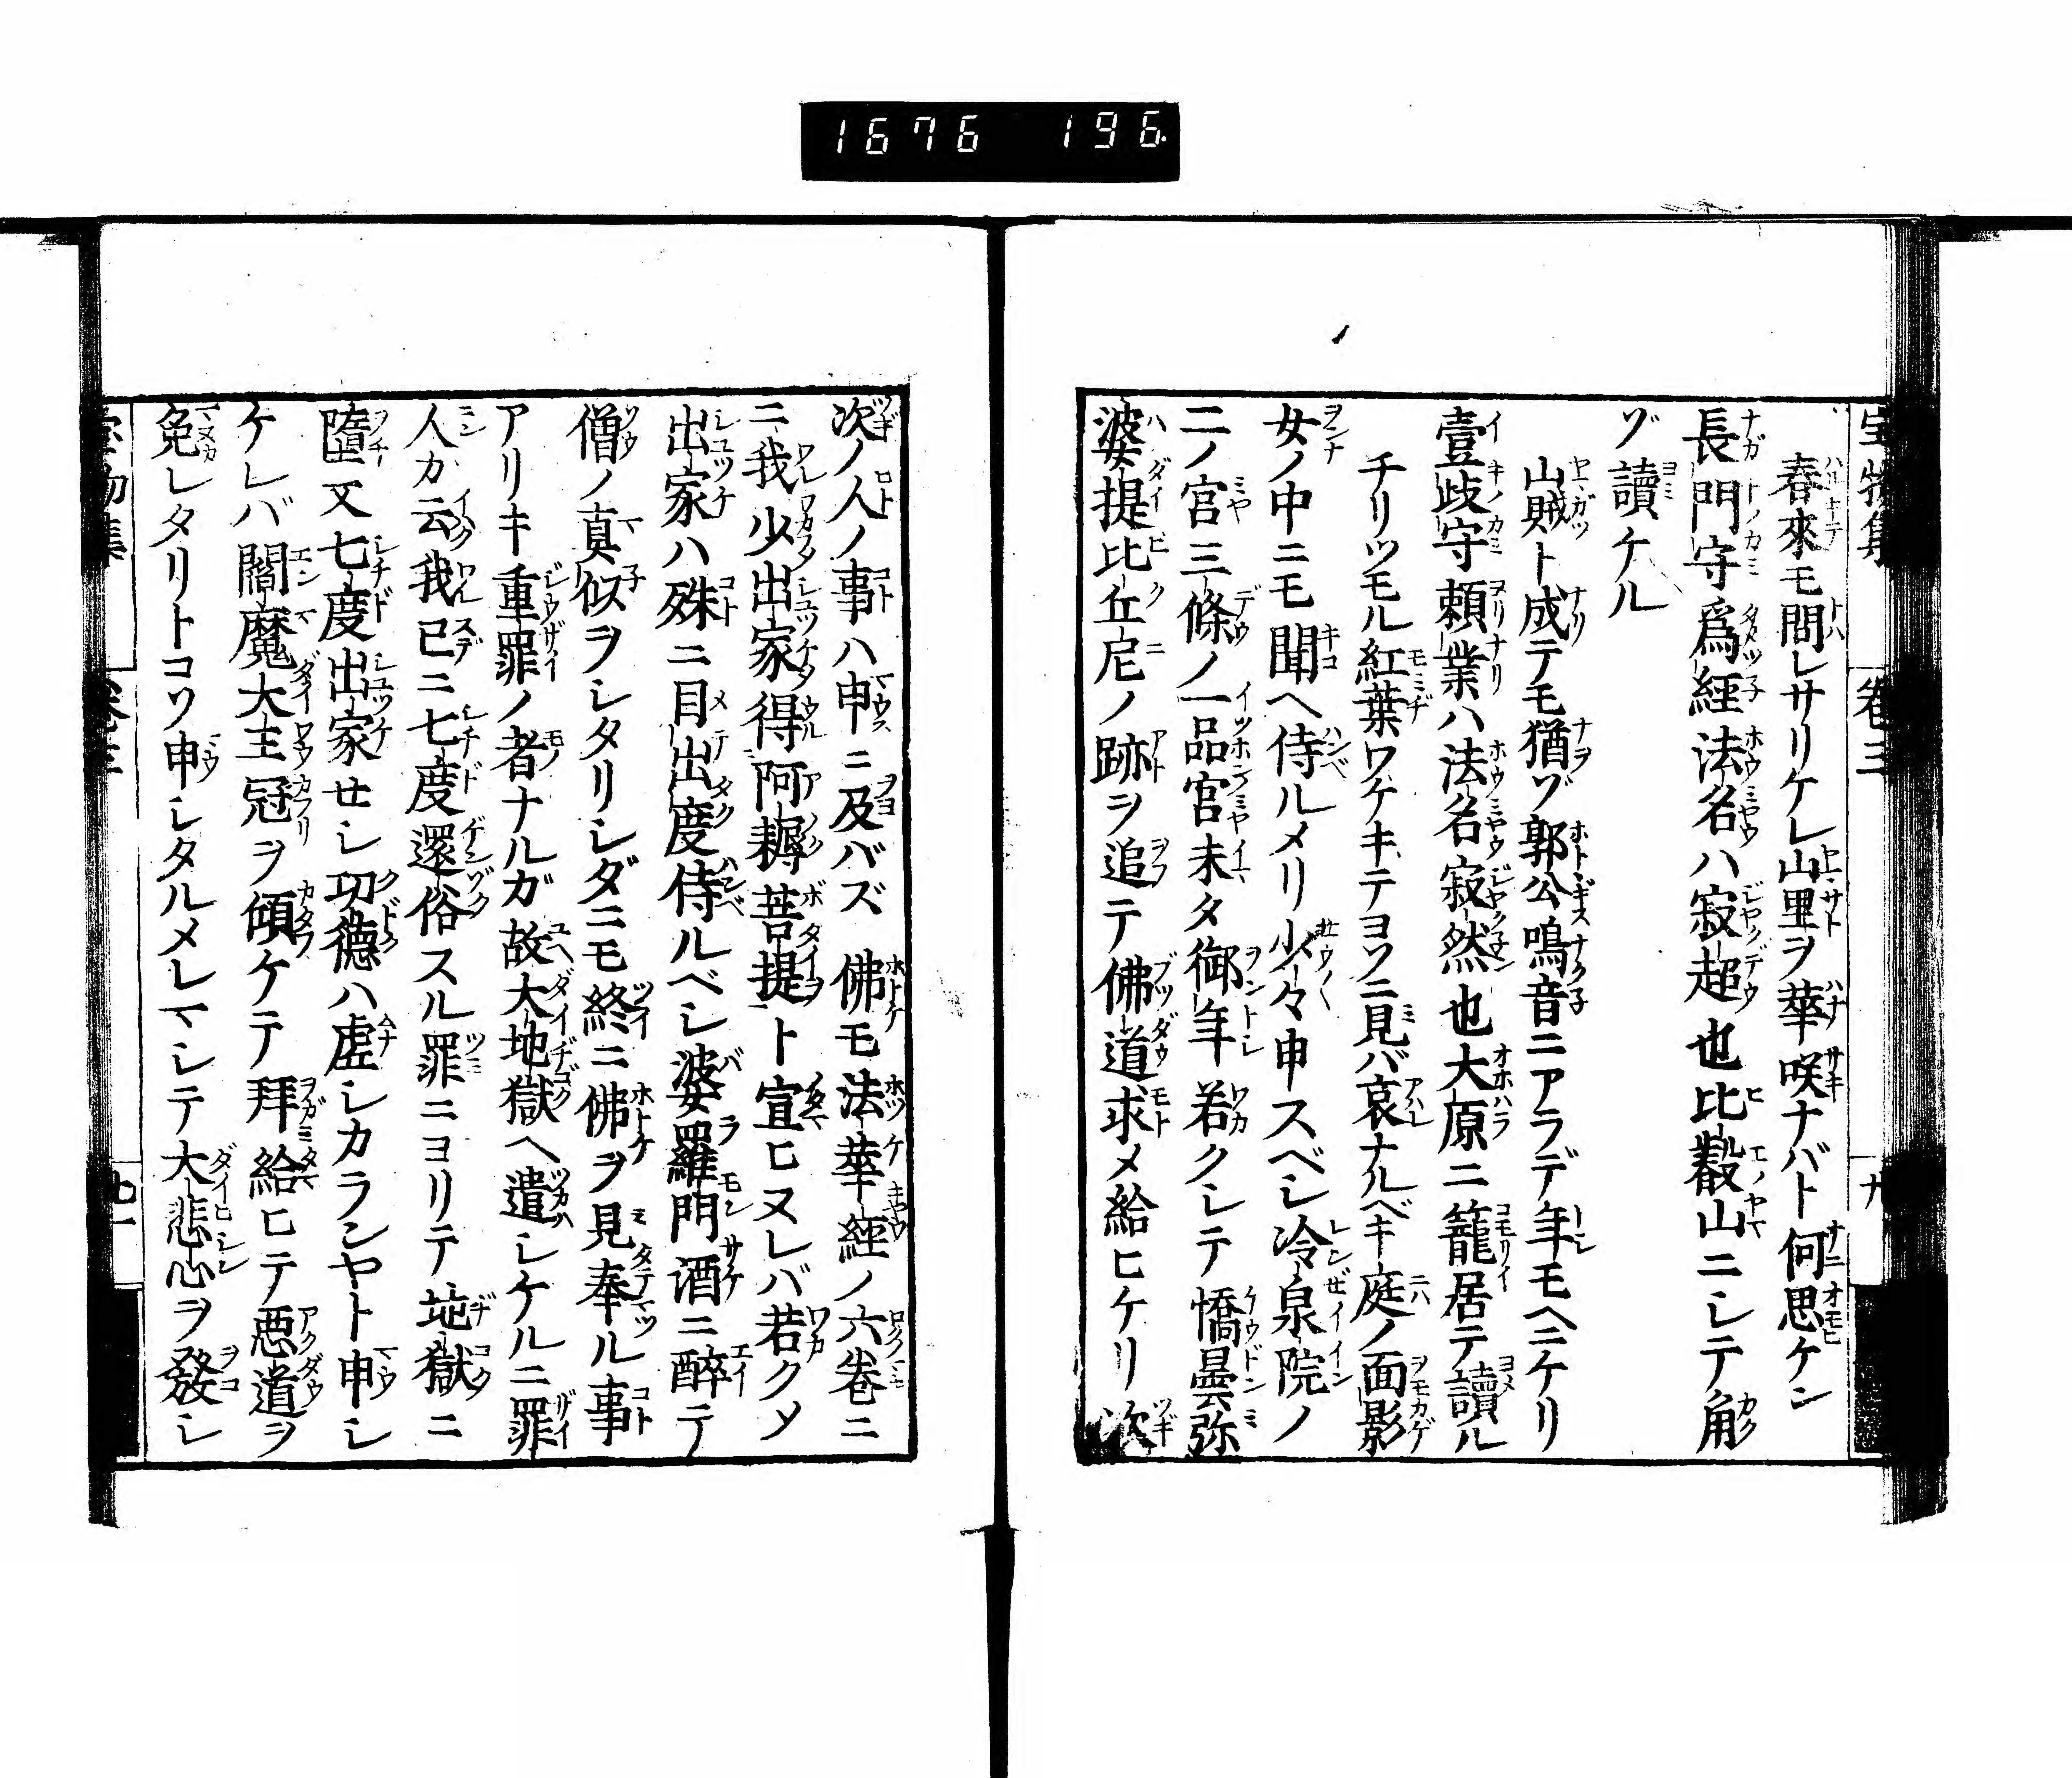 1676 196
春來モ問レサリケレ山里ヲ華咲ナバト何思ケン
長門守爲經法名ハ寂超也比叡山ニシテ角
ゾ讀ケル
山賎ト成テモ猶ゾ郭公鳴音ニアラデ年モヘニケリ
壹歧守頼業ハ法名寂然也大原ニ籠居テ讀ル
チリツモル紅葉ワケキテヨソニ見バ哀ナルベキ庭ノ面影
女ノ中ニモ聞ヘ侍ルメリ少々申スベシ冷泉院ノ
二ノ宮三條ノ一品宮未タ御年若クシテ憍曇弥
婆提比丘尼ノ跡ヲ追テ佛道求メ給ヒケリ次
次ノ人ノ事ハ申ニ及バズ佛モ法華經ノ六卷ニ
ニ我少出家得阿耨菩提ト宣ヒヌレバ若クメ
出家ハ殊ニ目出度侍ルベシ婆羅門酒ニ醉テ
僧ノ真似ヲシタリシダニモ終ニ佛ヲ見奉ル事
アリキ重罪ノ者ナルガ故大地獄ヘ遣シケルニ罪
人カ云我已ニ七度還俗スル罪ニヨリテ地獄ニ
墮又七度出家せシ功德ハ虚シカランヤト申シ
ケレバ閻魔大王冠ヲ傾ケテ拜給ヒテ惡道ヲ
免レタリトコソ申シタルメレマシテ大悲心ヲ發シ